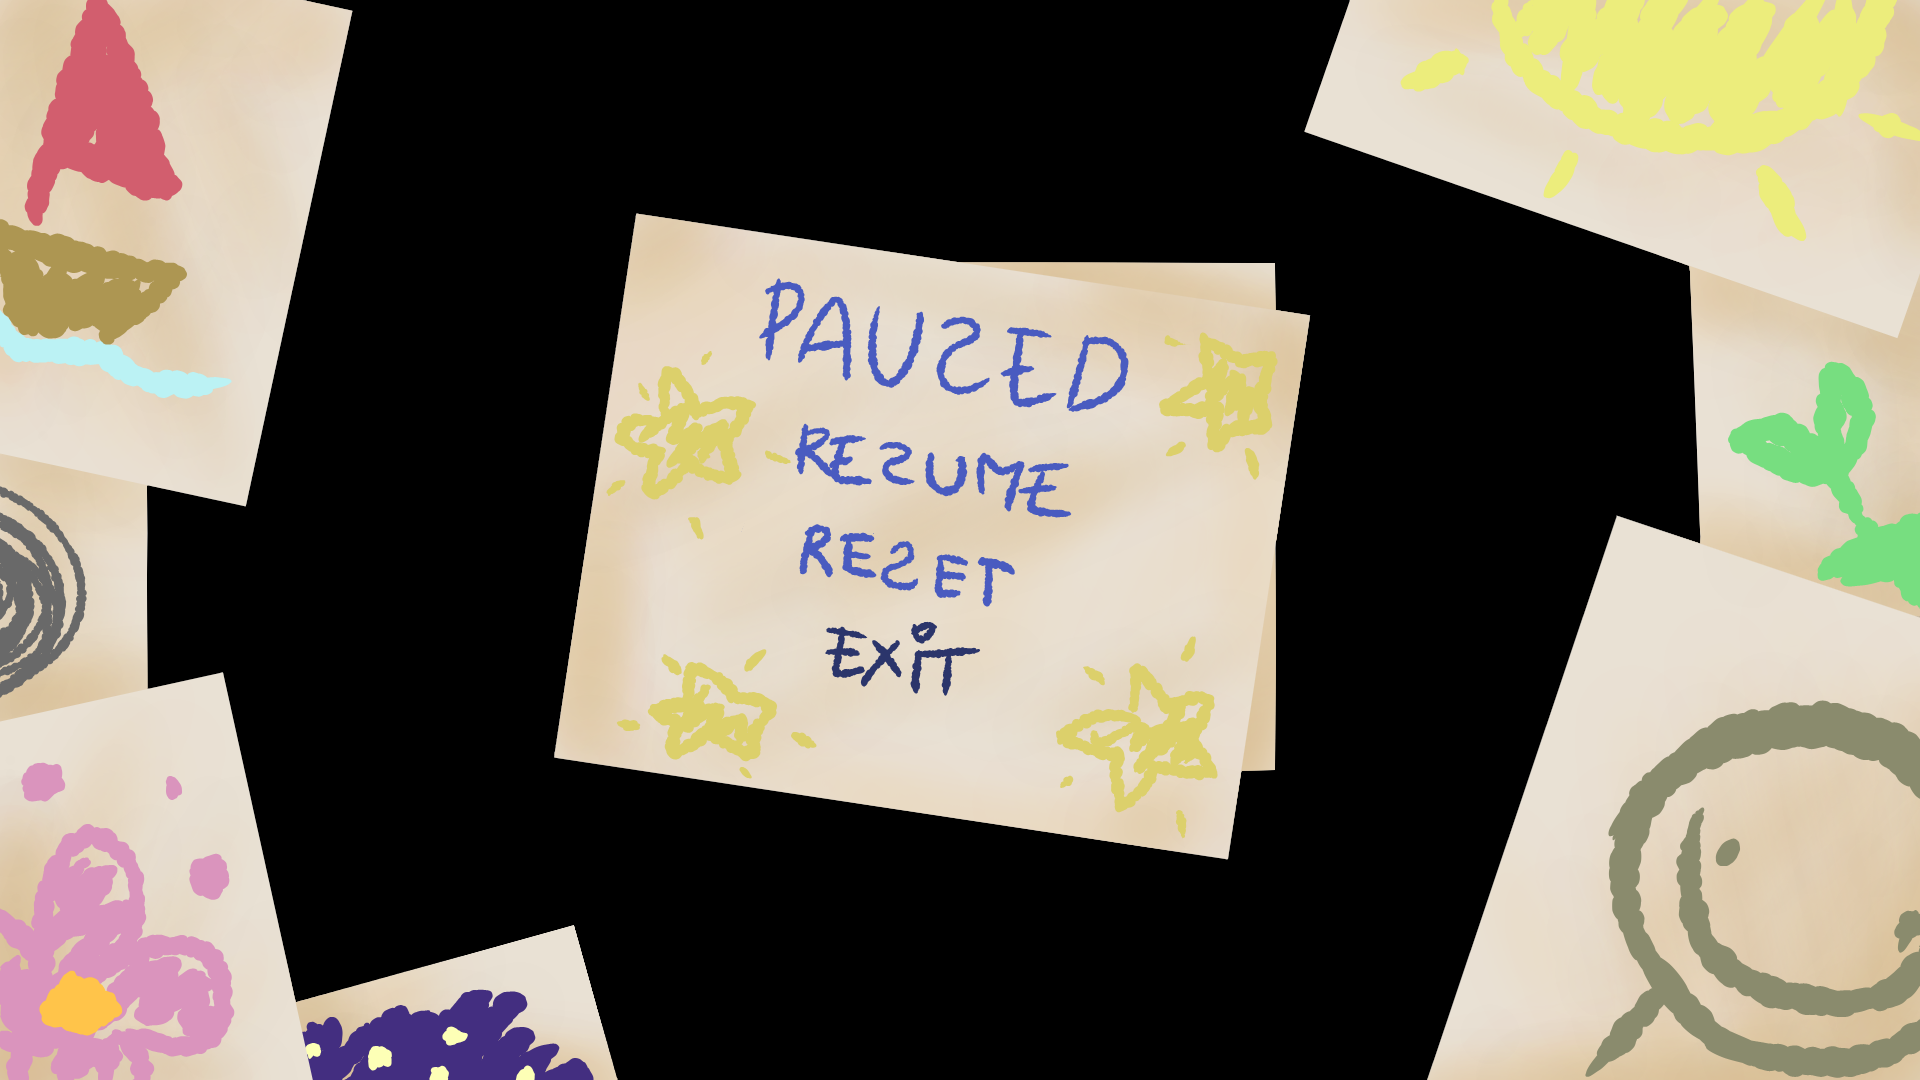 PAUSED
RESUME
RESET
EXiT